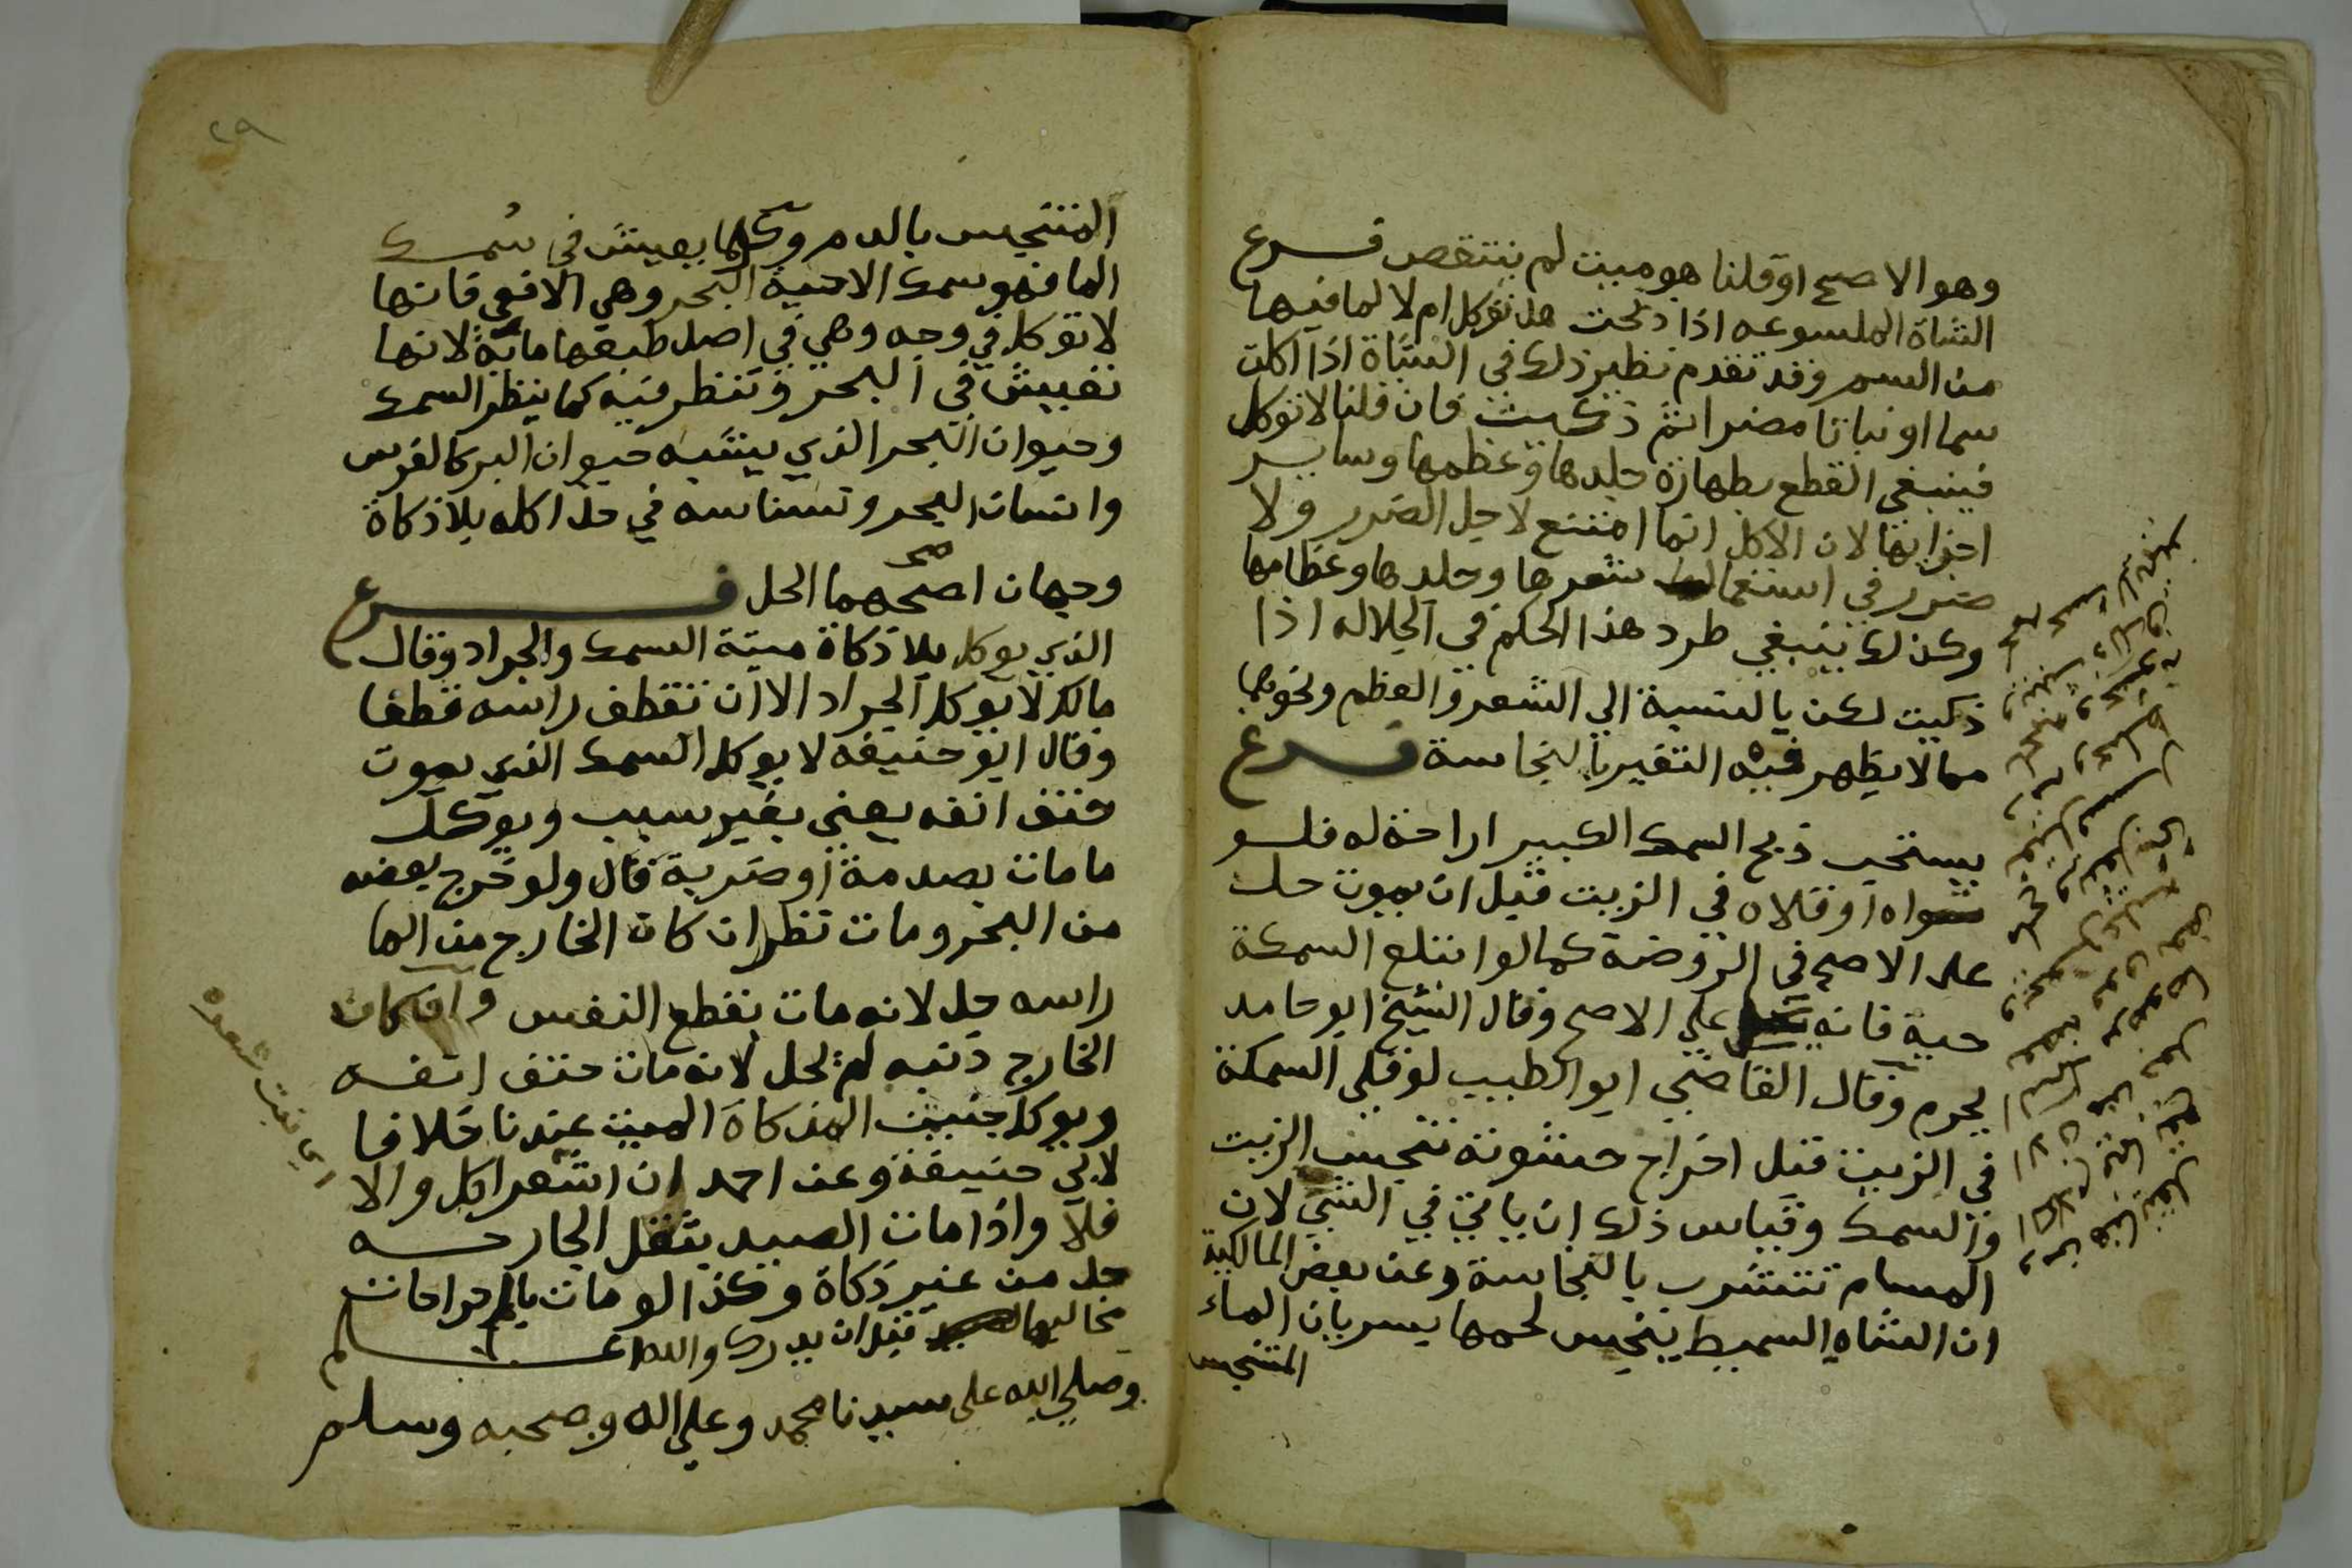 وهو الاصح او قلنا هو ميت لم ينتقص فرع
الشاة الملسوعه اذا ذبحت هل تؤكل ام لا لما فيها
من السم وقد تقدم نظير ذلك في الشاة اذا اكلت
سما او نباتا مضرا ثم ذكيت فان قلنا لا توكل
فينبغي القطع بطهارة جلدها وعظمها وساير
اجزايها لان الاكل انما امتنع لاجل الضرر ولا
ضرر في استعمال شعرها وجلدها وعظامها
وكذلك ينبغي طرد هذا الحكم في الجلاله اذا
ذكيت لكن بالنسبة الي الشعر والعظم ونحوهما
مما لا يظهر فيه التغير بالنجاسة فرع
يستحب ذبح السمك الكبير اراحة له فلو
شواه او قلاه في الزيت قبل ان يموت حل
علي الاصح في الروضة كما لو ابتلع السمكة
حية فانه علي الاصح وقال الشيخ ابو حامد
يحرم وقال القاضي ابو الطيب لو قلي السمكة
في الزيت قبل اخراج حشوته تنجس الزيت
والسمك وقياس ذلك ان ياتي في الشي لان
المسام تتشرب بالنجاسة وعن بعض المالكية
ان الشاه السميط ينجس لحمها بسريان الماء
المتنجس
٢٩
المتنجس بالدم وكلما يعيش في سمك
الما فهو سمك الا حية البحر وهي الافعي فانها
لا توكل في وجه وهي في اصل طبعها مائية لانها
تعيش في البحر وتنظر فيه كما ينظر السمك
وحيوان البحر الذي يشبه حيوان البر كالفرس
وانسان البحر ونسناسه في حل اكله بلا ذكاة
وجهان اصحهما الحل فرع
صح
الذي يوكل بلا ذكاة ميتة السمك والجراد وقال
مالك لا يوكل الجراد الا ان تقطف راسه قطفا
وقال ابو حنيفه لا يوكل السمك الذي يموت
حتف انفه يعني بغير سبب ويوكل
ما مات بصدمة او ضربة قال ولو خرج بعضه
من البحر ومات نظر ان كان الخارج من الما
راسه حل لانه مات بقطع النفس وان كان
الخارج ذنبه لم يحل لانه مات حتف انفه
ويوكل جنين المذكاة الميت عندنا خلافا
لابي حنيفة وعن احمد ان اشعر اكل والا
اي نبت شعره
فلا واذا مات الصيد بثقل الجارحه
حل من غير ذكاة وكذا لو مات بالجراحات
مخاليبها قبل ان يدرك والله اعلم
وصلي الله علي سيدنا محمد وعلي اله وصحبه وسلم